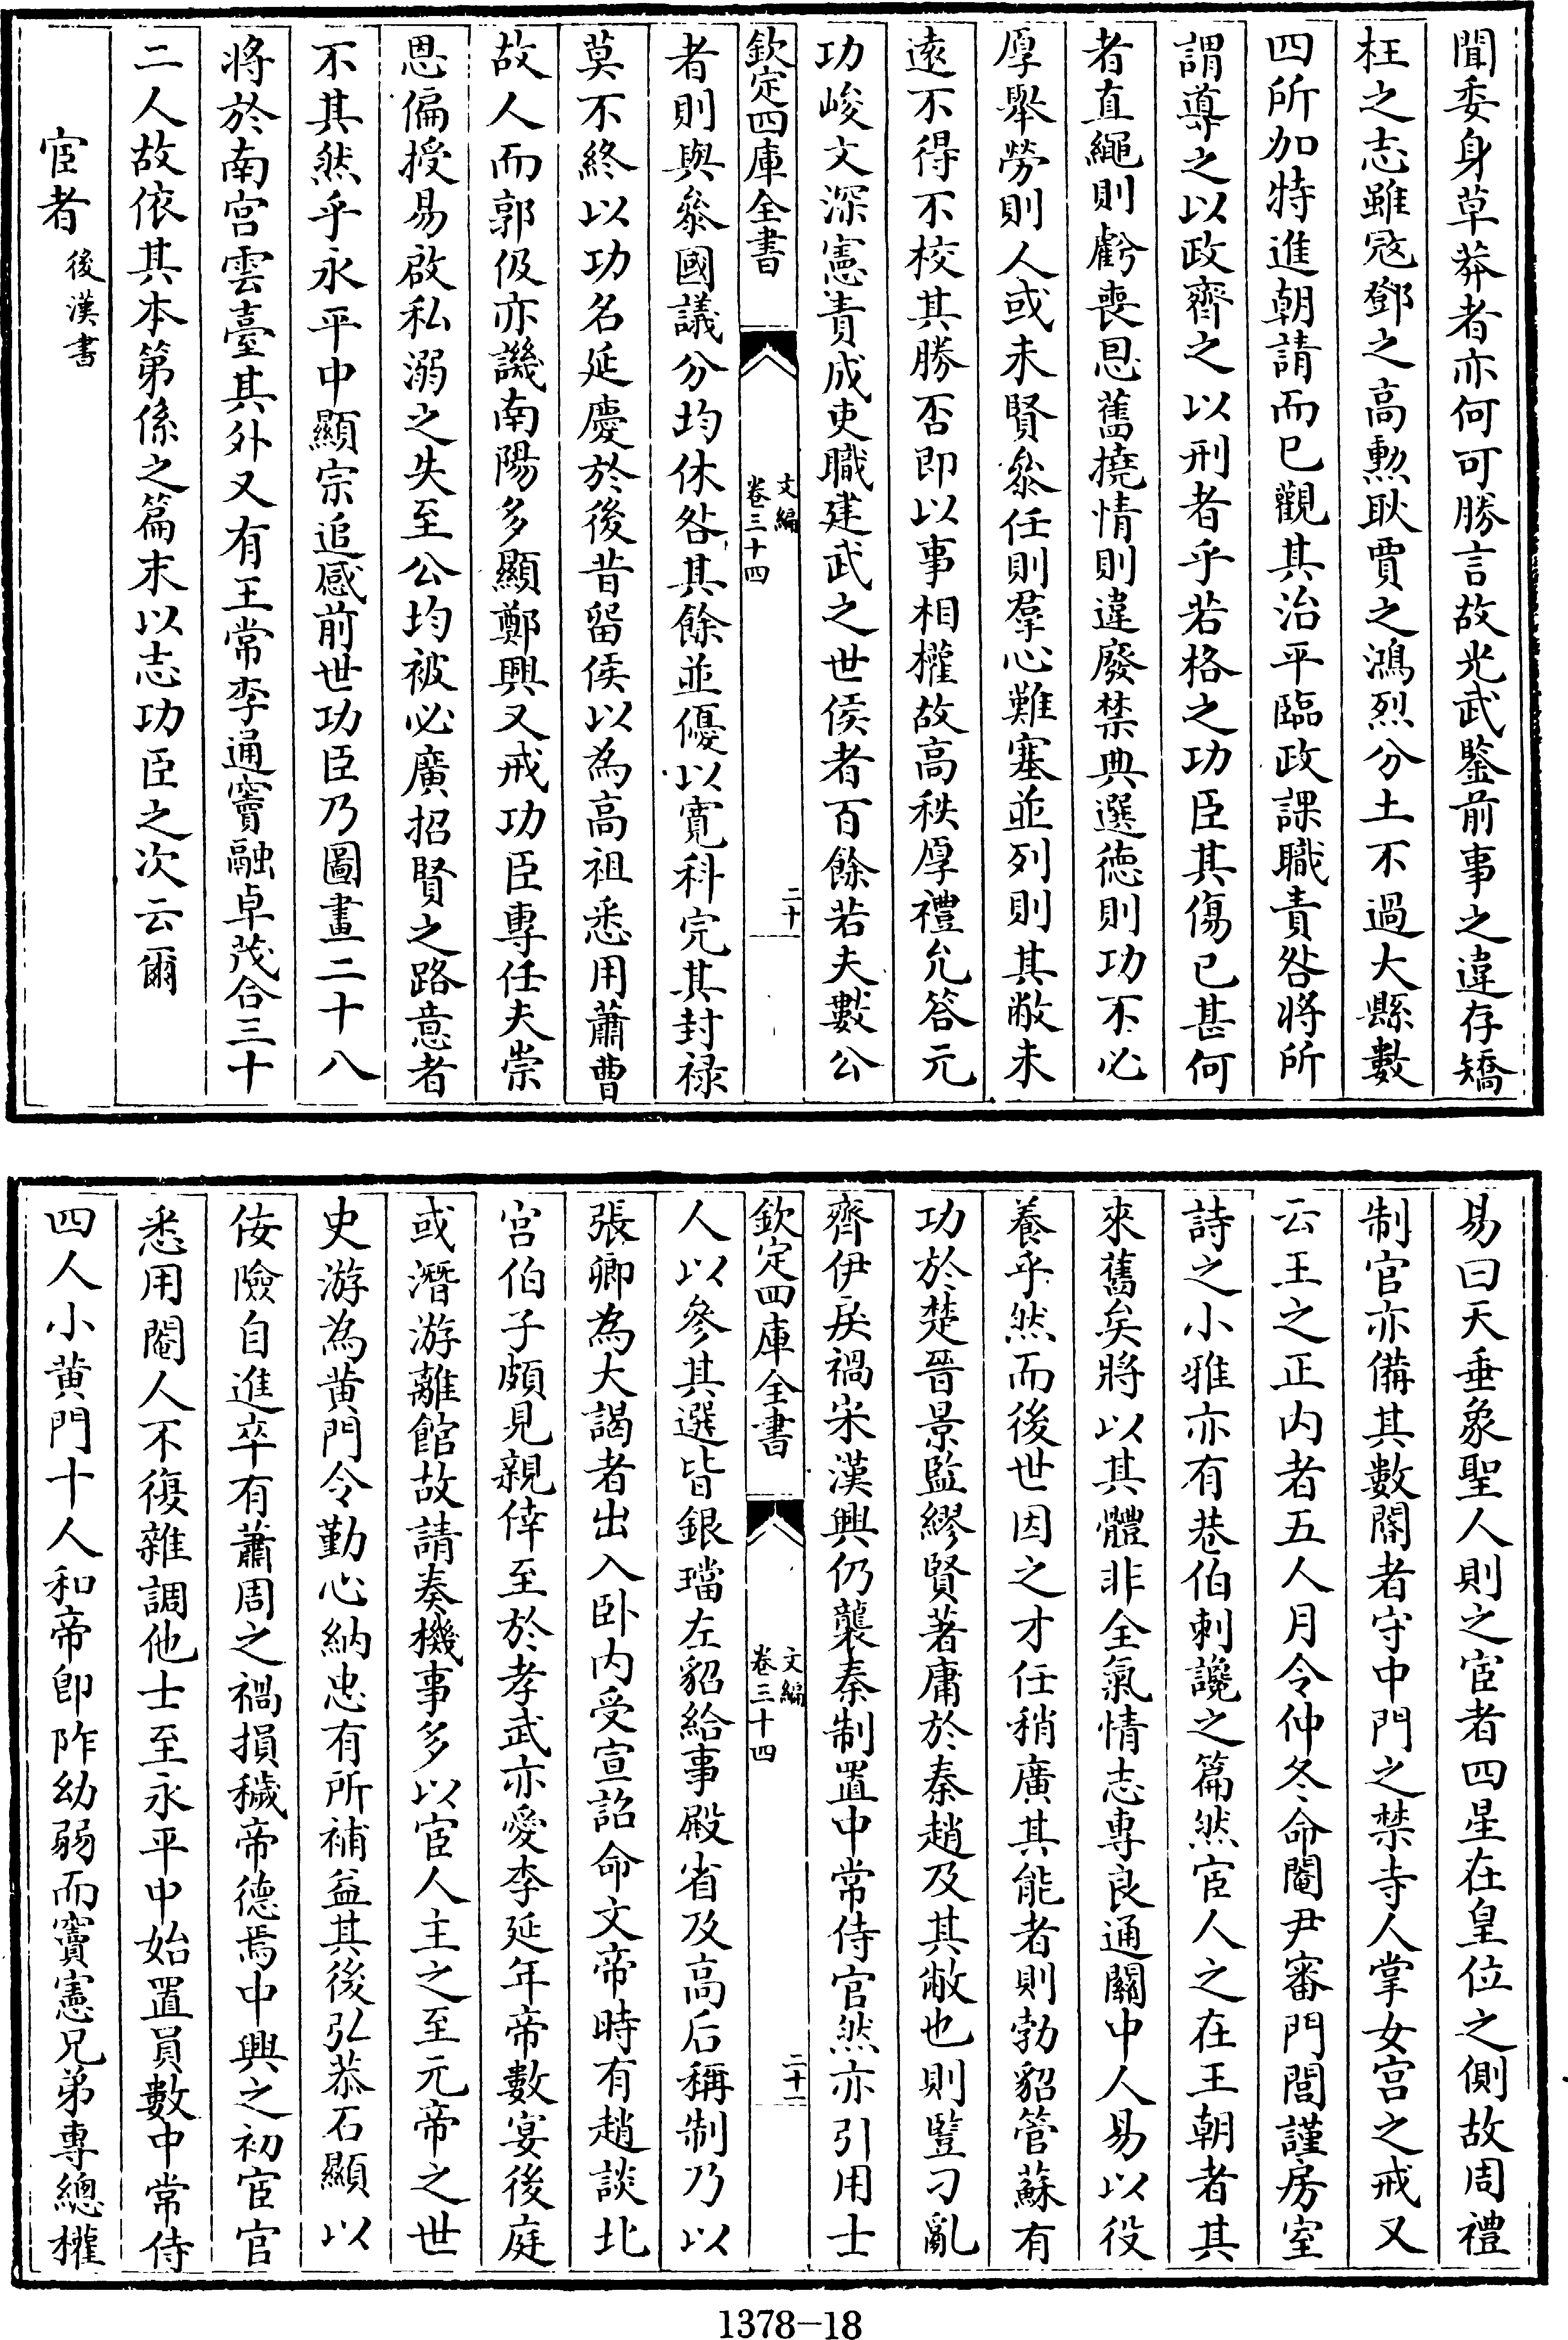 聞委身草莽者亦何可勝言故光武鑒前事之違存矯
枉之志雖冦鄧之高勲耿賈之鴻烈分土不過大縣數
四所加特進朝請而已觀其治平臨政課職責咎將所
謂導之以政齊之以刑者乎若格之功臣其傷已甚何
者直繩則虧喪恩舊撓情則違廢禁典選德則功不必
厚舉勞則人或未賢叅任則羣心難塞並列則其敝未
遠不得不校其勝否即以事相權故高秩厚禮允答元
功峻文深憲責成吏職建武之世侯者百餘若夫數公
欽定四庫全書
文編
卷三十四
二十
者則與叅國議分均休咎其餘並優以寛科完其封禄
莫不終以功名延慶於後昔留侯以為高祖悉用蕭曹
故人而郭伋亦譏南陽多顯鄭興又戒功臣專任夫崇
恩偏授易啟私溺之失至公均被必廣招賢之路意者
不其然乎永平中顯宗追感前世功臣乃圖畫二十八
將於南宫雲臺其外又有王常李通竇融卓茂合三十
二人故依其本第係之篇末以志功臣之次云爾
宦者 後漢書
易曰天垂象聖人則之宦者四星在皇位之側故周禮
制官亦備其數閽者守中門之禁寺人掌女宫之戒又
云王之正内者五人月令仲冬命閹尹審門閭謹房室
詩之小雅亦有巷伯刺讒之篇然宦人之在王朝者其
來舊矣將以其體非全氣情志專良通關中人易以役
養乎然而後世因之才任稍廣其能者則勃貂管蘇有
功於楚晉景監繆賢著庸於秦趙及其敝也則豎刁亂
齊伊戾禍宋漢興仍襲秦制置中常侍官然亦引用士
欽定四庫全書
文編
卷三十四
二十一
人以參其選皆銀璫左貂給事殿省及高后稱制乃以
張卿為大謁者出入卧内受宣詔命文帝時有趙談北
宫伯子頗見親倖至於孝武亦愛李延年帝數宴後庭
或潛游離館故請奏機事多以宦人主之至元帝之世
史游為黄門令勤心納忠有所補益其後弘恭石顯以
佞險自進卒有蕭周之禍損穢帝德焉中興之初宦官
悉用閹人不復雜調他士至永平中始置員數中常侍
四人小黄門十人和帝即阼幼弱而竇憲兄弟專總權
1378-18